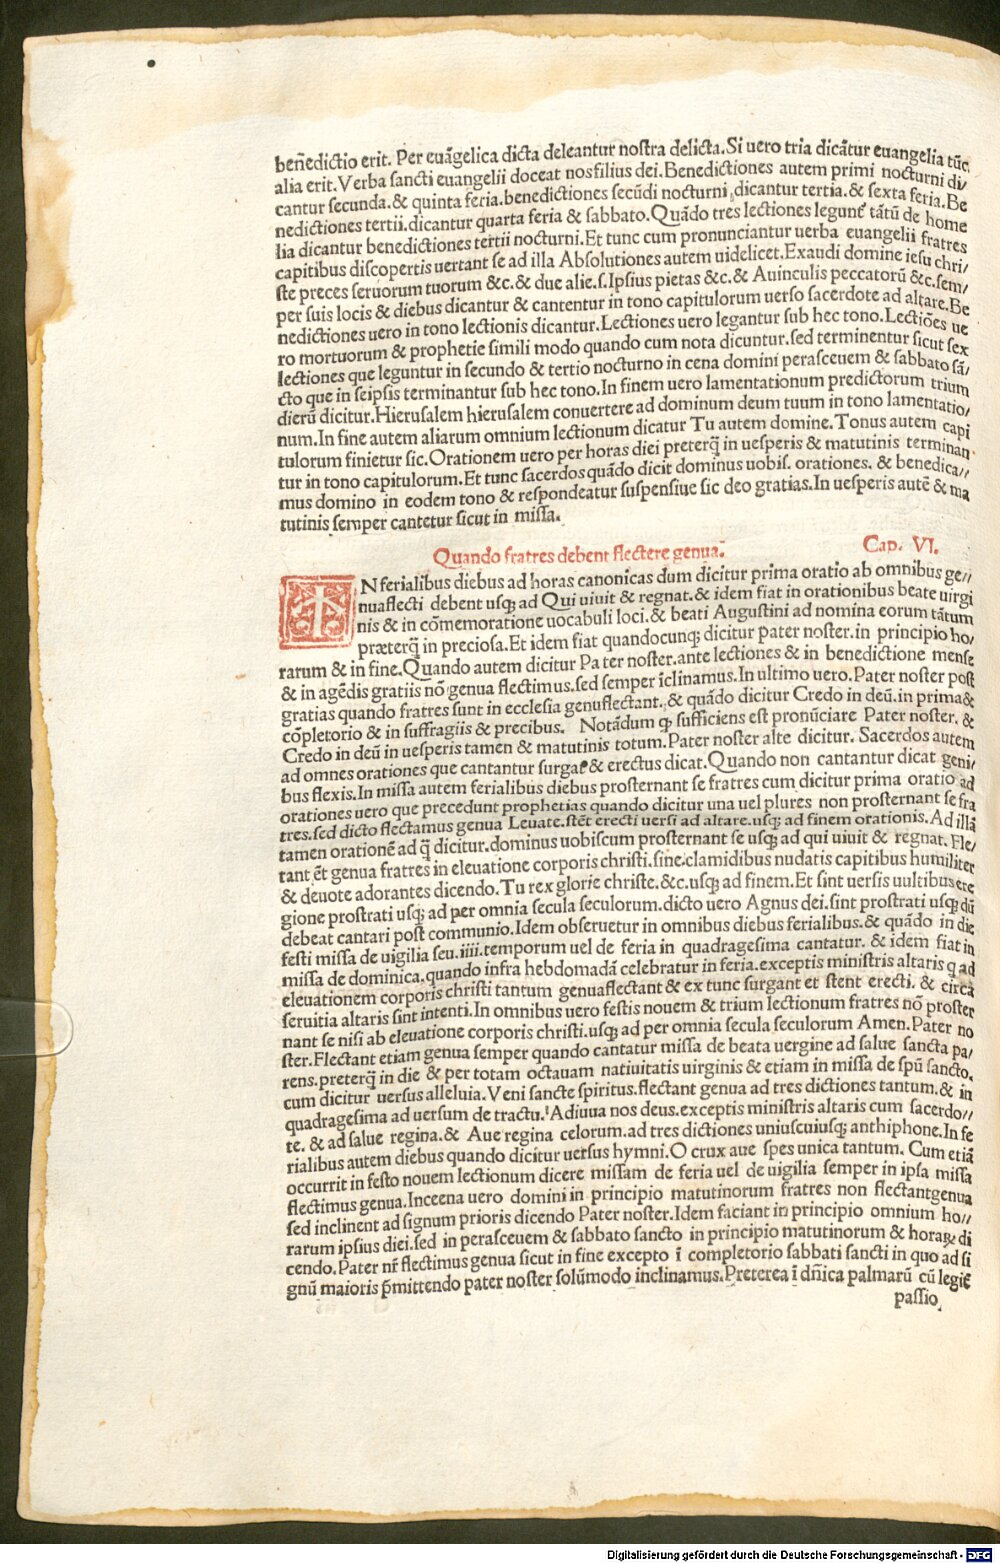 beñedictio erit. Per euāgelica dicta deleantur nostra delicta. Si uero tria dicātur euangelia tūc
alia erit. Verba sancti euangelii doceat nos filius dei. Benedictiones autem primi nocturni di/
cantur secunda. & quinta feria. benedictiones secūdi nocturni, dicantur tertia. & sexta feria. Be
nedictiones tertii. dicantur quarta feria & sabbato. Quādo tres lectiones legunt̃ tātū de home
lia dicantur benedictiones tertii nocturni. Et tunc cum pronunciantur uerba euangelii fratres
capitibus discopertis uertant se ad illa Absolutiones autem uidelicet. Exaudi domine iesu chri/
ste preces seruorum tuorum &c. & due alie. s. Ipsius pietas &c. & Auinculis peccatorū &c. sem/
per suis locis & diebus dicantur & cantentur in tono capitulorum uerso sacerdote ad altare. Be
nedictiones uero in tono lectionis dicantur. Lectiones uero legantur sub hec tono. Lectiōes ue
ro mortuorum & prophetie simili modo quando cum nota dicuntur. sed terminentur sicut sex
lectiones que leguntur in secundo & tertio nocturno in cena domini perasceuem & sabbato sā/
cto que in seipsis terminantur sub hec tono. In finem uero lamentationum predictorum trium
dierū dicitur. Hierusalem hierusalem conuertere ad dominum deum tuum in tono lamentatio/
num. In fine autem aliarum omnium lectionum dicatur Tu autem domine. Tonus autem capi
tulorum finietur sic. Orationem uero per horas diei preterq̄ in uesperis & matutinis terminan
tur in tono capitulorum. Et tunc sacerdos quādo dicit dominus uobis. orationes. & benedica//
mus domino in eodem tono & respondeatur suspensiue sic deo gratias. In uesperis autē & ma
tutinis semper cantetur sicut in missa.
Quando fratres debent flectere genua. Cap. VI.
IN ferialibus diebus ad horas canonicas dum dicitur prima oratio ab omnibus ge//
nuaflecti debent usq; ad Qui uiuit & regnat. & idem fiat in orationibus beate uirgi
nis & in cōmemoratione uocabuli loci. & beati Augustini ad nomina eorum tātum
præterq̄ in preciosa. Et idem fiat quandocunq; dicitur pater noster. in principio ho/
rarum & in fine. Quando autem dicitur Pa ter noster. ante lectiones & in benedictione mense
& in agēdis gratiis nō genua flectimus. sed semper īclinamus. In ultimo uero. Pater noster post
gratias quando fratres sunt in ecclesia genuflectant. & quādo dicitur Credo in deū. in prima &
cōpletorio & in suffragiis & precibus. Notādum ꝙ sufficiens est pronūciare Pater noster. &
Credo in deū in uesperis tamen & matutinis totum. Pater noster alte dicitur. Sacerdos autem
ad omnes orationes que cantantur surgat & erectus dicat. Quando non cantantur dicat geni/
bus flexis. In missa autem ferialibus diebus prosternant se fratres cum dicitur prima oratio ad
orationes uero que precedunt prophetias quando dicitur una uel plures non prosternant se fra
tres. sed dicto flectamus genua Leuate. stēt erecti uersi ad altare. usq; ad finem orationis. Ad illā
tamen orationē ad q̄ dicitur. dominus uobiscum prosternant se usq; ad qui uiuit & regnat. Fle/
tant ēt genua fratres in eleuatione corporis christi. sine clamidibus nudatis capitibus humiliter
& deuote adorantes dicendo. Tu rex glorie christe. &c. usq; ad finem. Et sint uersis uultibus ere
gione prostrati usq; ad per omnia secula seculorum. dicto uero Agnus dei. sint prostrati usq; dū
debeat cantari post communio. Idem obseruetur in omnibus diebus ferialibus. & quādo in die
festi missa de uigilia seu. iiii. temporum uel de feria in quadragesima cantatur. & idem fiat in
missa de dominica. quando infra hebdomadā celebratur in feria. exceptis ministris altaris q ad
eleuationem corporis christi tantum genuaflectant & ex tunc surgant et stent erecti. & circa
seruitia altaris sint intenti. In omnibus uero festis nouem & trium lectionum fratres nō proster
nant se nisi ab eleuatione corporis christi. usq; ad per omnia secula seculorum Amen. Pater no
ster. Flectant etiam genua semper quando cantatur missa de beata uergine ad salue sancta pa/
rens. preterq̄ in die & per totam octauam natiuitatis uirginis & etiam in missa de spū sancto.
cum dicitur uersus alleluia. Veni sancte spiritus. flectant genua ad tres dictiones tantum. & in
quadragesima ad uersum de tractu. Adiuua nos deus. exceptis ministris altaris cum sacerdo//
te. & ad salue regina. & Aue regina celorum. ad tres dictiones uniuscuiusq; anthiphone. In fe
rialibus autem diebus quando dicitur uersus hymni. O crux aue spes unica tantum. Cum etiā
occurrit in festo nouem lectionum dicere missam de feria uel de uigilia semper in ipsa missa
flectimus genua. Inceena uero domini in principio matutinorum fratres non flectantgenua
sed inclinent ad signum prioris dicendo Pater noster. Idem faciant in principio omnium ho//
rarum ipsius diei. sed in perasceuem & sabbato sancto in principio matutinorum & horaꝝ di
cendo. Pater nr̄ flectimus genua sicut in fine excepto ī completorio sabbati sancti in quo ad si
gnū maioris p̄mittendo pater noster solūmodo inclinamus. Preterea ī dn̄ica palmarū cū legit̃
passio
Digitalisierung gefördert durch die Deutsche Forschungsgemeinschaft - DFG